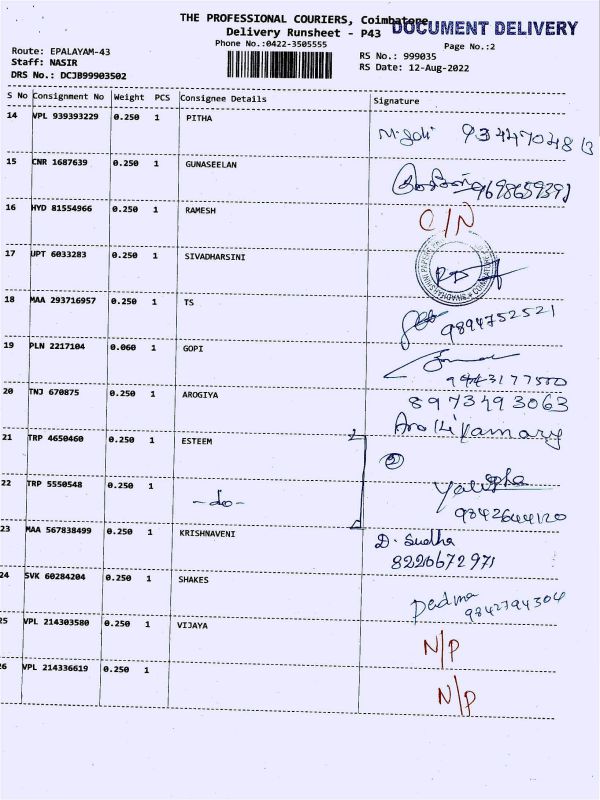 THE PROFESSIONAL COURIERS, Coimbatore
DOCUMENT DELIVERY
Delivery Runsheet - P43
Phone No.:0422-3505555
Page No.:2
Route: EPALAYAM-43
RS No.: 999035
Staff: NASIR
RS Date: 12-Aug-2022
DRS No.: DCJB99903502
S No Consignment No Weight PCS Consignee Details Signature
14 VPL 939393229 0.250 1 PITHA
9344704813
15 CNR 1687639 0.250 1 GUNASEELAN
9698659391
16 HYD 81554966 0.250 1 RAMESH C/N
17 UPT 6033283 0.250 1 SIVADHARSINI
18 MAA 293716957 0.250 1 TS
9894752521
19 PLN 2217104 0.060 1 GOPI
9943177500
20 TNJ 670875 0.250 1 AROGIYA 8973493063
Arokiyamary
21 TRP 4650460 0.250 1 ESTEEM 2
22 TRP 5550548 0.250 1 -do-
9842644120
23 MAA 567838499 0.250 1 KRISHNAVENI D. Sudha
8220672971
24 SVK 60284204 0.250 1 SHAKES Padma
9842794304
25 VPL 214303580 0.250 1 VIJAYA N/P
26 VPL 214336619 0.250 1 N/P